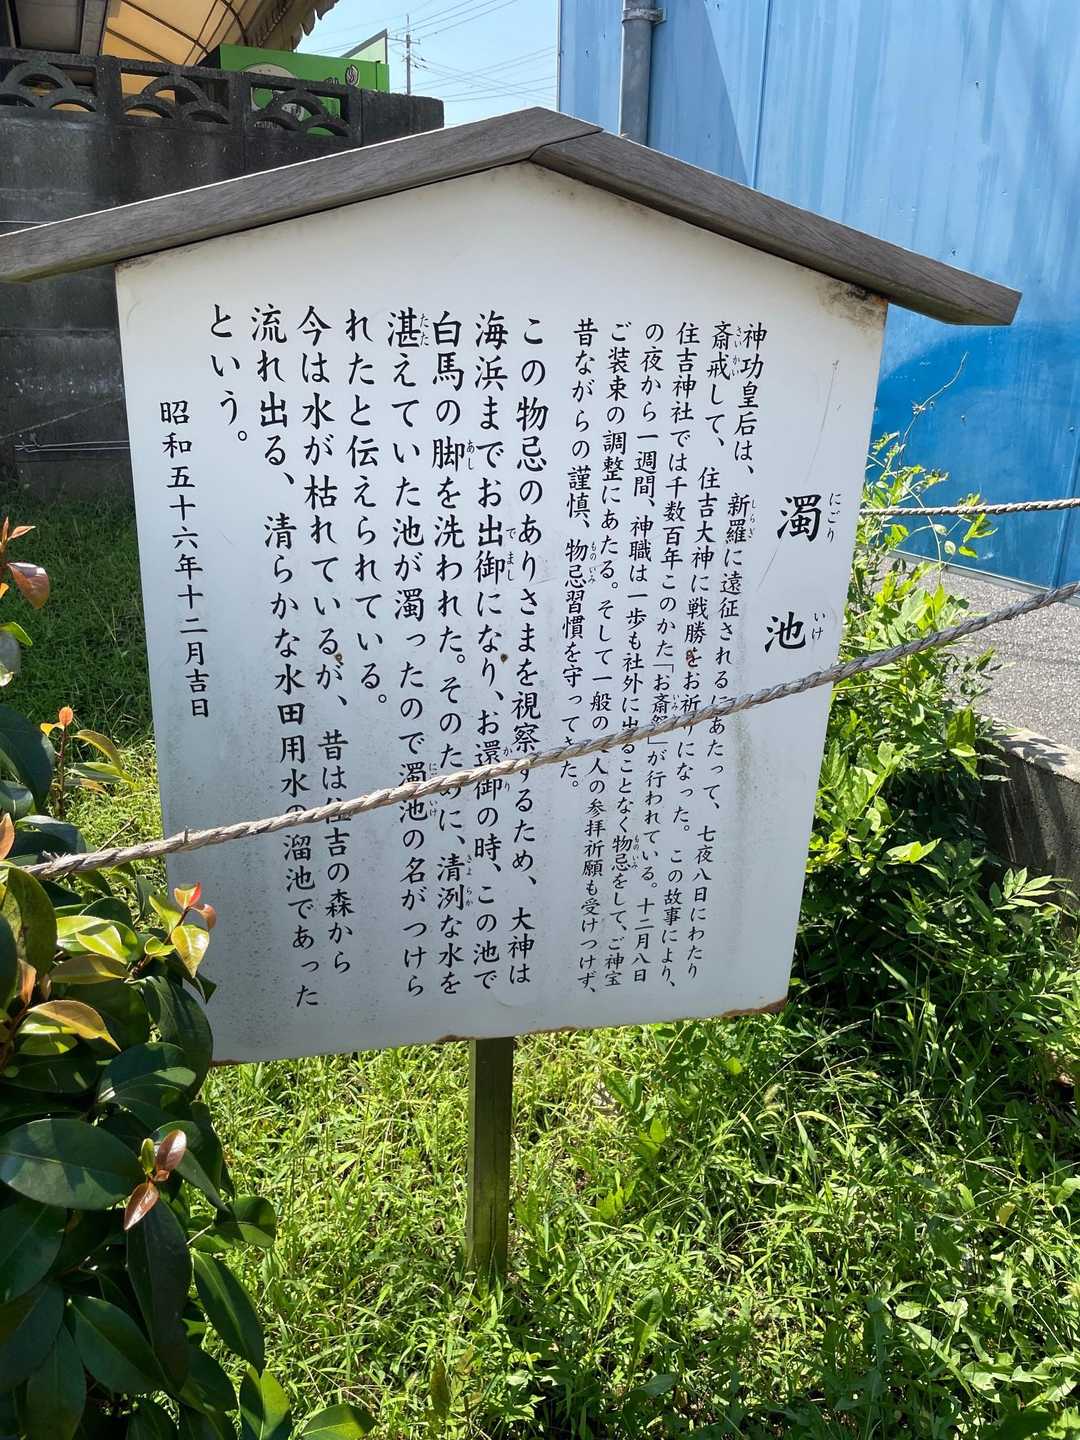 濁池
にごりいけ
神功皇后は、新羅に遠征されるにあたって、七夜八日にわたり
しらぎ
斎戒して、住吉大神に戦勝をお祈りになった。この故事により、
さいかい
住吉神社では千数百年このかた「お斎祭」が行われている。十二月八日
いみ
の夜から一週間、神職は一歩も社外に出ることなく物忌をして、ご神宝
ものいみ
ご装束の調整にあたる。そして一般の人の参拝祈願も受けつけず、
昔ながらの謹慎、物忌習慣を守ってきた。
ものいみ
この物忌のありさまを視察するため、大神は
海浜までお出御になり、お還御の時、この池で
でまし
かり
白馬の脚を洗われた。そのために、清洌な水を
あし
きよらか
湛えていた池が濁ったので濁池の名がつけら
たた
にごいけ
れたと伝えられている。
今は水が枯れているが、昔は住吉の森から
流れ出る、清らかな水田用水の溜池であった
という。
昭和五十六年十二月吉日